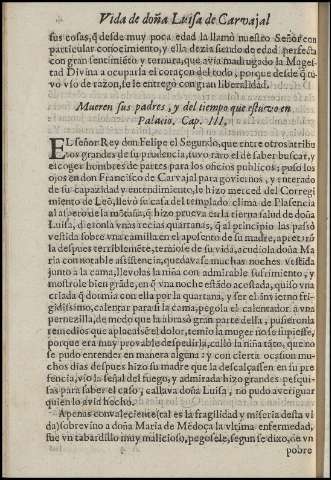 Vida de doña Luisa de Carvajal
sus cosas, q̃ desde muy poca edad la llamò nuestro Señor con
particular conocimiento, y ella dezia siendo de edad perfecta
con gran sentimiẽto y ternura, que avia madrugado la Mages-
tad Divina a ocuparla el coraçon del todo, porque desde q̃ tu-
vo vso de razon, se le entregò con gran liberalidad.
Mueren sus padres, y del tiempo que estuvo en
Palacio. Cap. III.
EL señor Rey don Felipe el Segundo, que entre otros atribu
tos grandes de su prudencia, tuvo raro el de saber buscar, y
escoger hombres de partes para los oficios publicos; puso los
ojos en don Francisco de Carvajal para goviernos, y enterado
de su capacidad y entendimiẽto, le hizo merced del Corregi
miento de Leõ, llevò su casa del templado clima de Plasencia
al aspero de la mõtaña, q̃ hizo prueva en la tierna salud de doña
Luisa, dieronla vnas recias quartanas, q̃ al principio las passò
vestida sobre vna camilla en el aposento de su madre, apretaro
la despues terriblemẽte, temiose de su vida, acudiola doña Ma
ria con notable assistencia, quedavase muchas noches vestida
junto a la cama, llevolas la niña con admirable sufrimiento, y
mostrole bien grãde, en q̃ vna noche estãdo acostada, quiso vna
criada q̃ dormia con ella por la quartana, y ser el ãnvierno fri-
gidissimo, calentar para si la cama, pegola el calentador a vna
pernezilla, de modo que la abrasò gran parte della, pusieronla
remedios que aplacassẽ el dolor, temio la muger no se supiesse,
porque era muy provable despedirla, callò la niña tãto, que no
se pudo entender en manera alguna: y con cierta ocasion mu-
chos dias despues hizo su madre que la descalçassen en su pre
sencia, vio la señal del fuego, y admirada hizo grandes pesqui-
sas para saber el caso, callava doña Luisa, no pudo averiguar
quien lo avia hecho.
Apenas convaleciente (tal es la fragilidad y miseria desta vi
da) sobrevino a doña Maria de Mẽdoça la vltima enfermedad,
fue vn tabardillo muy malicioso, pegosele, segun se dixo, de vn
pobre